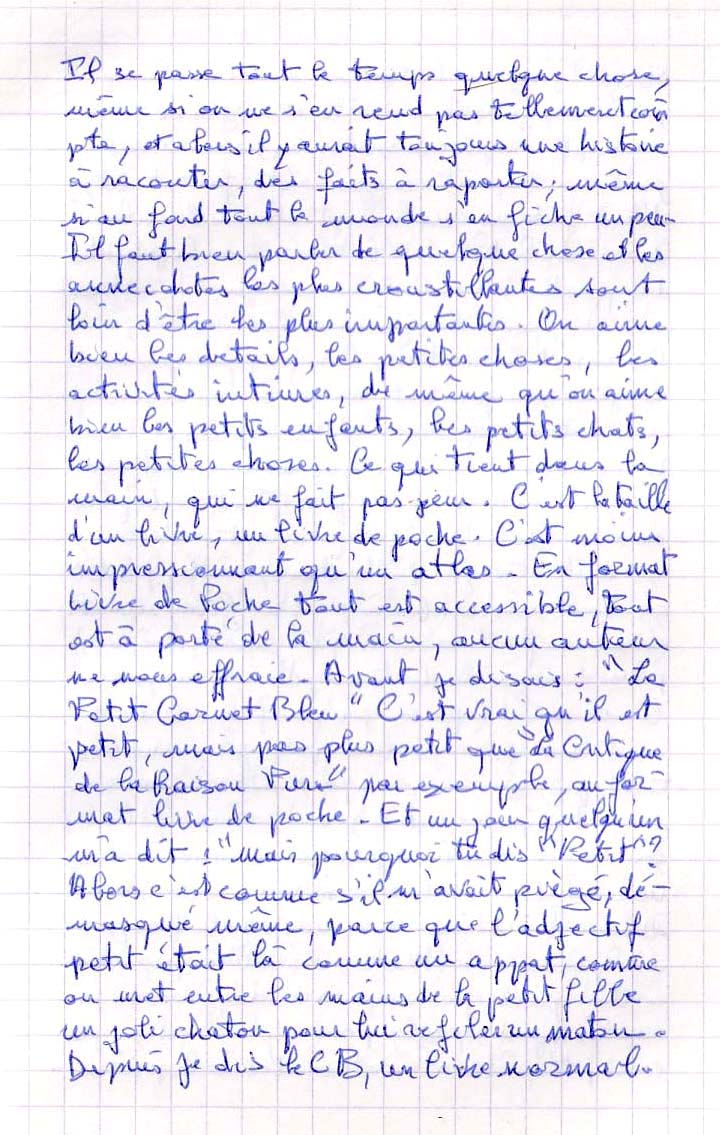 Il se passe tout le temps quelque chose,
même si on ne s'en rend pas tellement com
pte, et alors il y aurait toujours une histoire
à raconter, des faits à raporter ; même
si au fond tout le monde s'en fiche un peu.
Il faut bien parler de quelque chose et les
annecdotes les plus croustillantes sont
loin d'être les plus importantes. On aime
bien les details, les petites choses, les
activités intimes, de même qu'on aime
bien les petits enfants, les petits chats,
les petites choses. Ce qui tient dans la
main, qui ne fait pas peur. C'est la taille
d'un livre, un livre de poche. C'est moins
impressionnant qu'un atlas. En format
Livre de Poche tout est accessible, tout
est à porté de la main, aucun auteur
ne nous effraie. Avant je disais : "Le
Petit Carnet Bleu" C'est vrai qu'il est
petit, mais pas plus petit que "La Critique
de la Raison Pure" par exemple, au for-
mat livre de poche. Et un jour quelqu'un
m'a dit : "mais pourquoi tu dis "Petit"?
Alors c'est comme s'il m'avait piègé, dé-
masqué même, parce que l'adjectif
petit était là comme un appat, comme
on met entre les mains de la petit fille
un joli chaton pour lui refiler un maton.
Depuis je dis le CB, un livre normal.